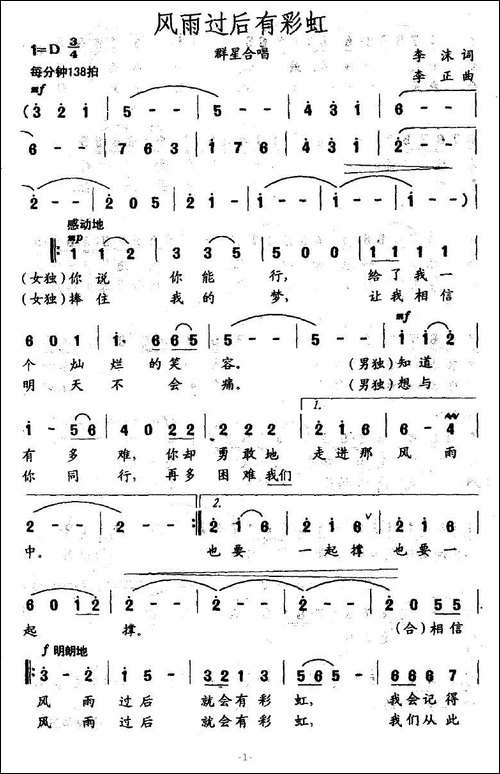 风雨过后有彩虹
1=D 3/4
群星合唱
李沫 词
每分钟138拍
李正 曲
mf
( 3 2 1 | 5 - - | 5 - - | 4 3 1 | 6 - -
6 - - | 7 6 3 | 1 7 6 | 4 3 1 | 2 - -
2 - - | 2 0 5 | 2 1 - | 1 - - | 1 - - | 1 - - )
感动地
mp
1 1 2 | 3 3 5 | 5 0 0 | 1 1 1 1
(女独)你说 你能行, 给了我一
(女独)捧住 我的梦, 让我相信
mf
6 0 1 | 1 · 6 6 5 | 5 - - | 5 - - | 1 1 2
个灿烂的笑容。 (男独)知道
明天不会痛。 (男独)想与
1.
1 - 5 6 | 4 0 2 2 | 2 2 2 | 2 1 6 | 6 - 4
有多难,你却勇敢地走进那风雨
你同行,再多困难我们
2.
2 - - | 2 - - :| 2 1 6 | 2 1 6 V | 2 1 6
中。 也要一起撑也要一
6 0 1 2 | 2 - - | 2 - - | 2 - - | 2 0 5 5
起撑。 (合)相信
f 明朗地
3 - 2 | 1 5 - | 3 2 1 3 | 5 - - | 6 6 6 7
风雨过后 就会有彩虹, 我会记得
风雨过后 就会有彩虹, 我们从此
-1-